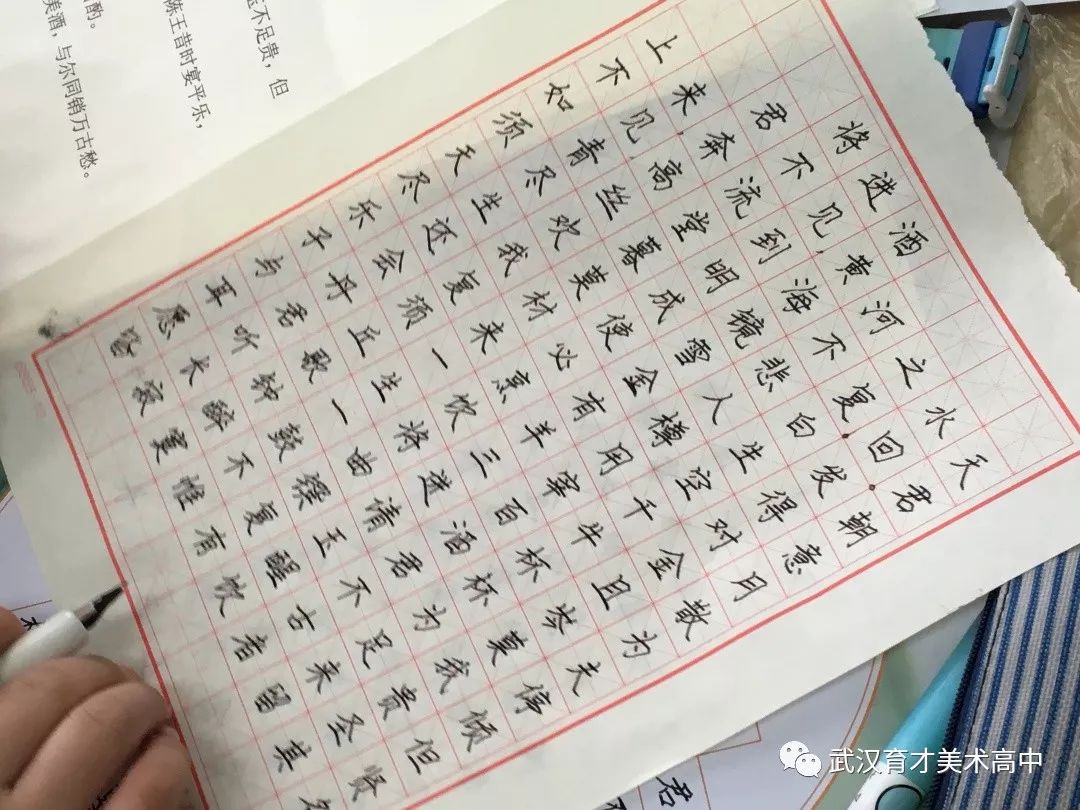 不足贵，但
陈王昔时宴平乐，
酌。
美酒，与尔同销万古愁。
将进酒
君不见黄河之水天
上来奔流到海不复回君
不见高堂明镜悲白发朝
如青丝暮成雪人生得意
须尽欢莫使金樽空对月
天生我材必有用千金散
尽还复来烹羊宰牛且为
乐会须一饮三百杯岑夫
子丹丘生将进酒杯莫停
与君歌一曲请君为我倾
耳听钟鼓馔玉不足贵但
愿长醉不复醒古来圣贤
皆寂寞惟有饮者留其名
君
武汉育才美术高中